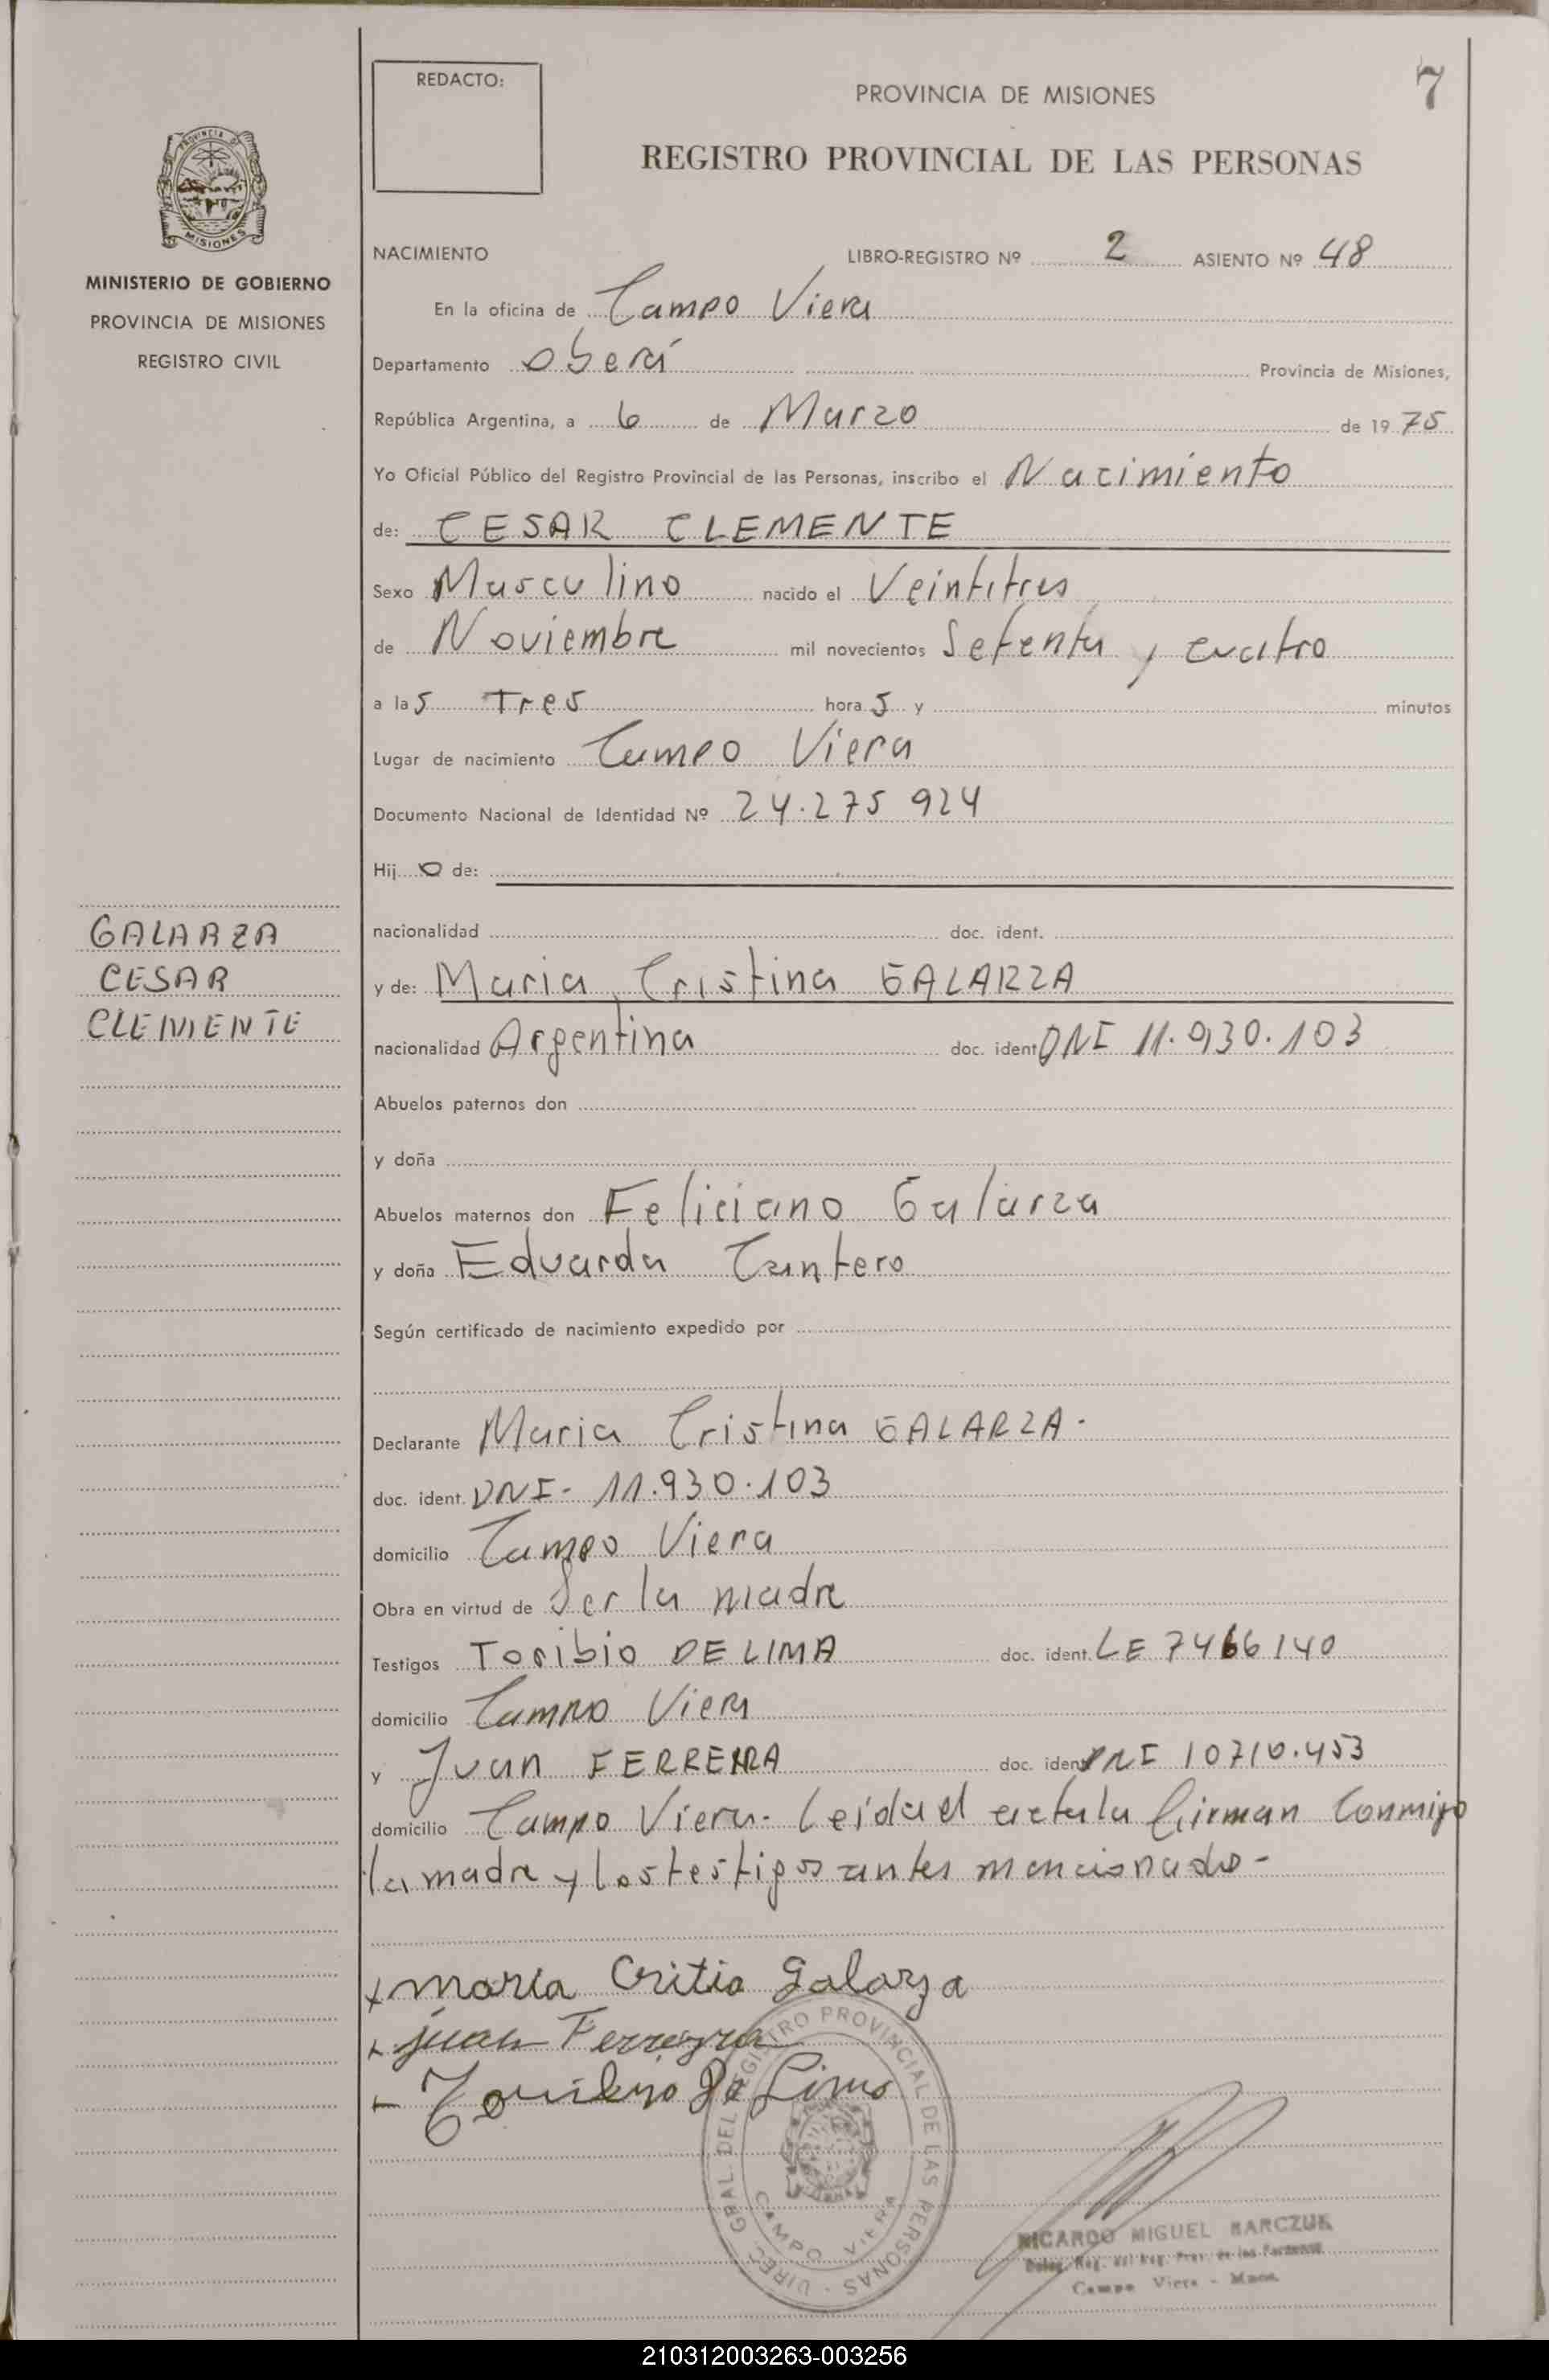 7
REDACTO:
PROVINCIA DE MISIONES
REGISTRO PROVINCIAL DE LAS PERSONAS
PROVINCIA DE
MISIONES
MINISTERIO DE GOBIERNO
PROVINCIA DE MISIONES
REGISTRO CIVIL
NACIMIENTO LIBRO-REGISTRO Nº 2 ASIENTO Nº 48
En la oficina de Campo Viera
Departamento Oberá Provincia de Misiones,
República Argentina, a 6 de Marzo de 1975
Yo Oficial Público del Registro Provincial de las Personas, inscribo el Nacimiento
de: CESAR CLEMENTE
Sexo Masculino nacido el Veintitres
de Noviembre mil novecientos Setenta y cuatro
a las Tres horas y minutos
Lugar de nacimiento Campo Viera
Documento Nacional de Identidad Nº 24.275 924
Hijo de:
GALARZA
CESAR
CLEMENTE
nacionalidad doc. ident.
y de: Maria Cristina GALARZA
nacionalidad Argentina doc. ident DNI 11.930.103
Abuelos paternos don
y doña
Abuelos maternos don Feliciano Galarza
y doña Eduarda Cantero
Según certificado de nacimiento expedido por
Declarante Maria Cristina GALARZA.
doc. ident. DNI- 11.930.103
domicilio Campo Viera
Obra en virtud de Ser la madre
Testigos Toribio DE LIMA doc. ident. LE 7466140
domicilio Campo Viera
y Juan FERREIRA doc. ident DNI 10710.453
domicilio Campo Viera- Leida el acta la firman Conmigo
la madre y los testigos antes mencionado-
x maria Critia galarza
x juan Ferreyra
x Toribio De Lima
GRAL. DEL REGISTRO PROVINCIAL DE LAS PERSONAS
CAMPO VIERA
RICARDO MIGUEL BARCZUK
Deleg. Reg. del Reg. Prov. de las Personas
Campo Viera - Mnes.
210312003263-003256